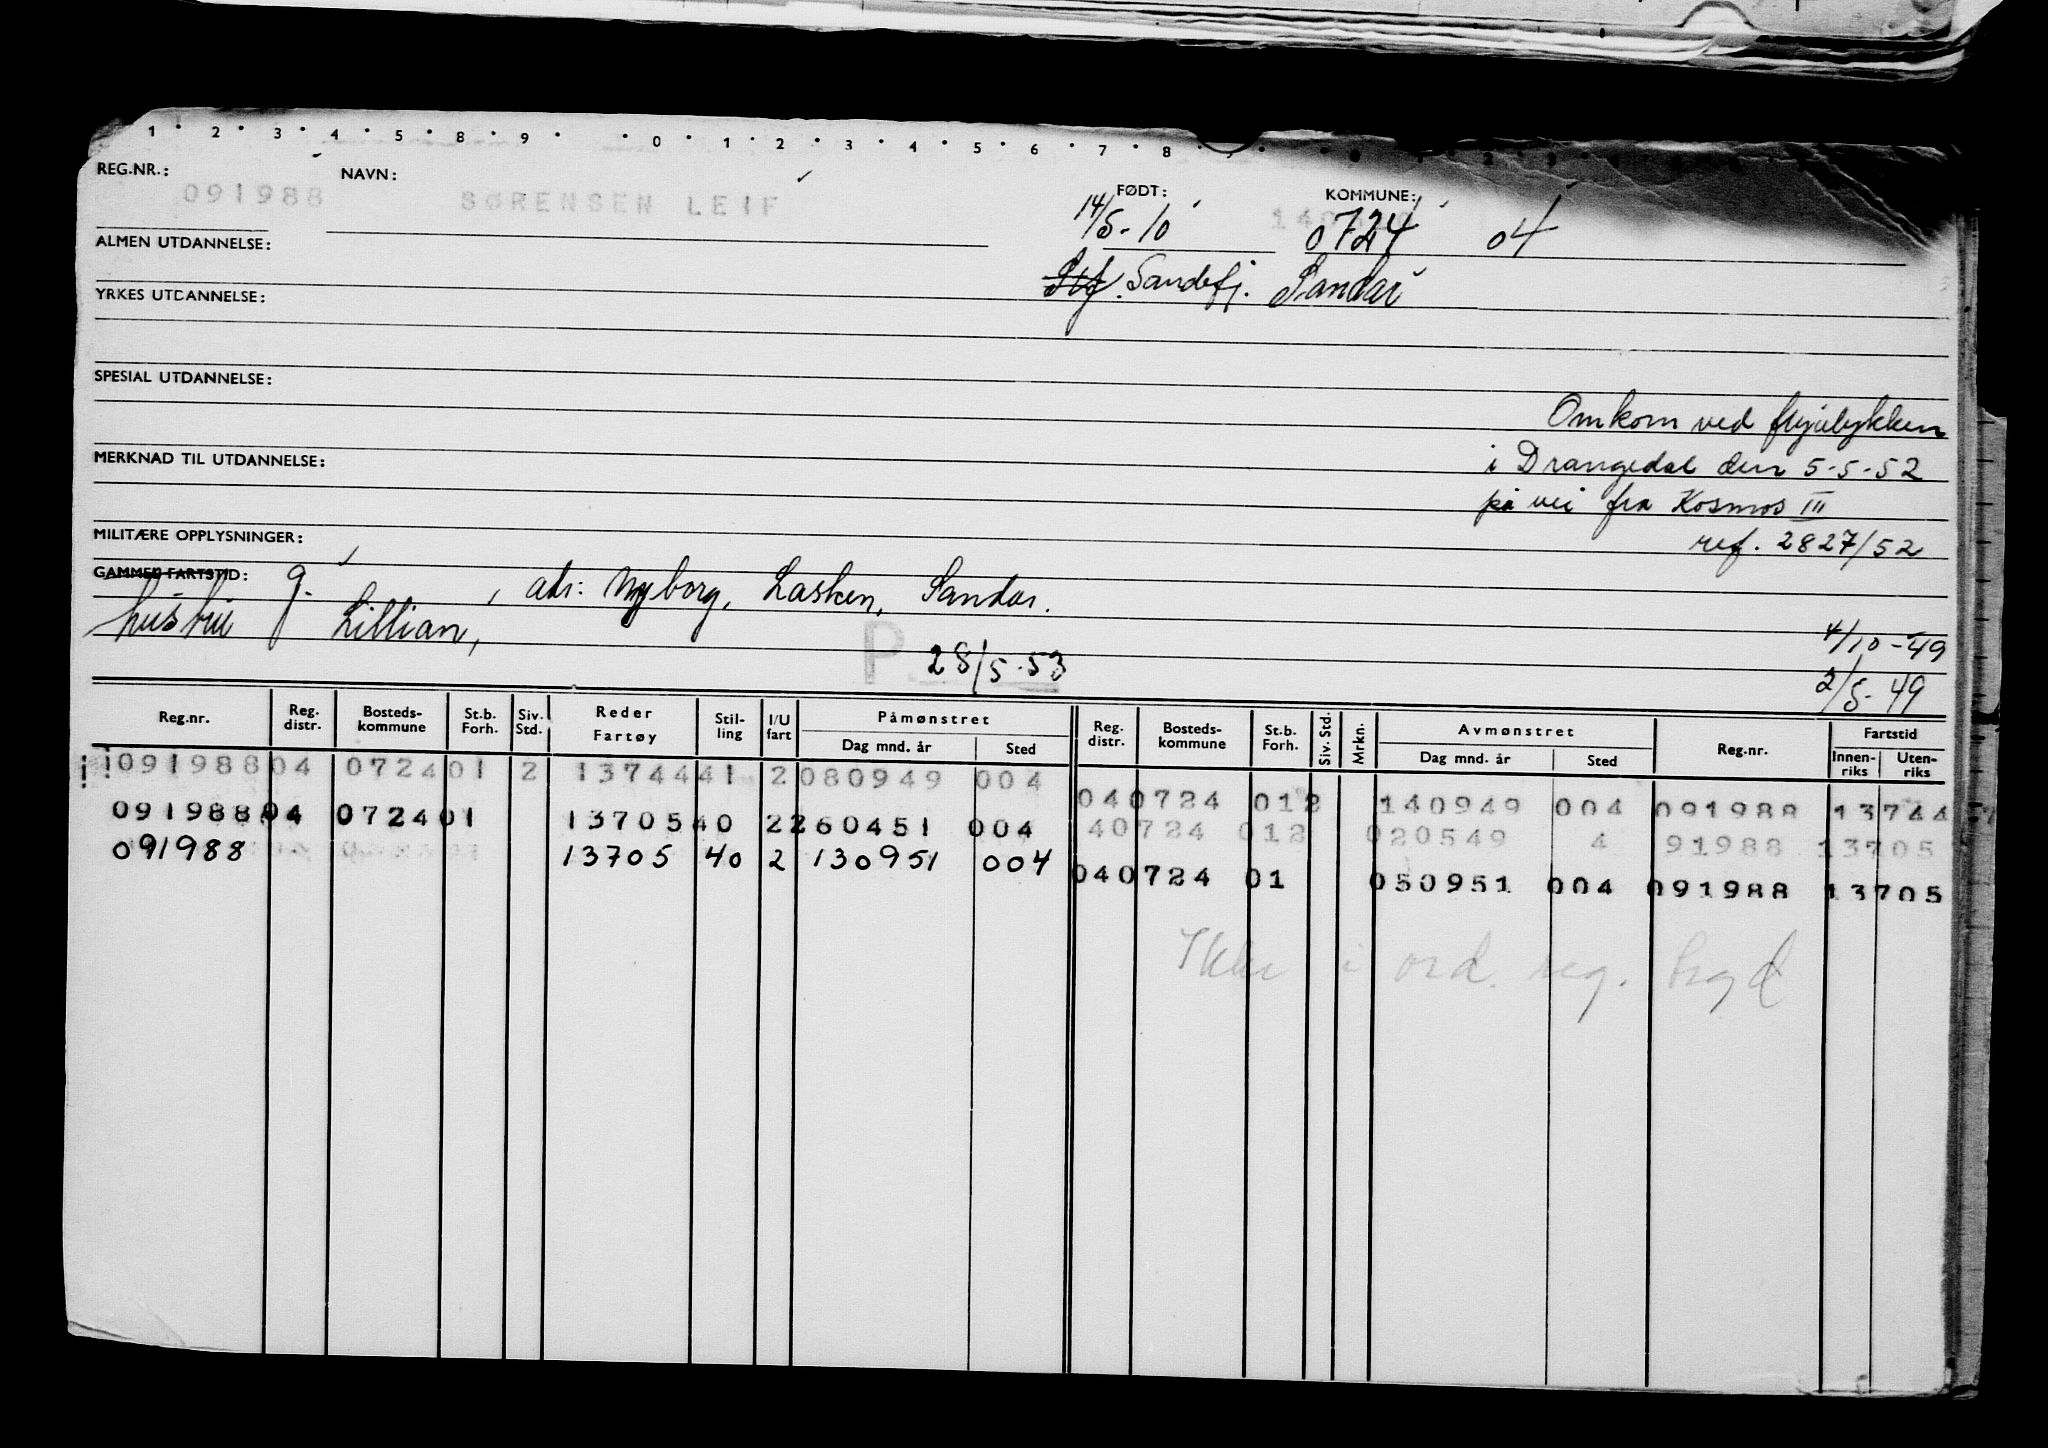 1 · 2 · 3 · 4 · 5 · 8 · 9 · · 0 · 1 · 2 · 3 · 4 · 5 · 6 · 7 · 8
REG.NR.: NAVN: FØDT: KOMMUNE:
091988 SØRENSEN LEIF 14/5-10 0724 04
ALMEN UTDANNELSE:
Sandefj. Sandar
YRKES UTDANNELSE:
SPESIAL UTDANNELSE:
Omkom ved flyulykken
MERKNAD TIL UTDANNELSE: i Drangedal den 5-5-52
på vei fra Kosmos III
MILITÆRE OPPLYSNINGER: ref. 2827/52
GAMMEL FARTSTID: g.
hustru Lillian, adr: Nyborg, Lasken, Sandar.
4/10-49
P. 28/5-53
2/5-49
Reg.nr. Reg. distr. Bosteds-kommune St.b. Forh. Siv. Std. Reder Fartøy Stil-ling I/U fart Påmønstret Dag mnd. år Sted Reg. distr. Bosteds-kommune St.b. Forh. Siv. Std. Mrkn. Avmønstret Dag mnd. år Sted Reg.nr. Fartstid Innen-riks Uten-riks
091988 04 0724 01 2 13744 41 2 080949 004
040724 012 140949 004 091988 13744
091988 04 0724 01 13705 40 2 260451 004
40724 012 020549 4 91988 13705
091988 13705 40 2 130951 004
040724 01 050951 004 091988 13705
Ikke i ord. reg.